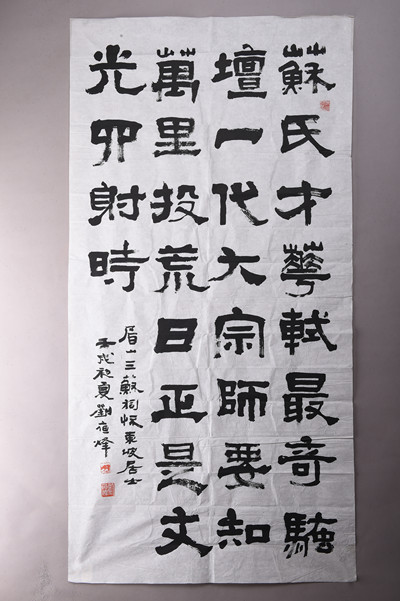 蘇氏才華軾最奇騷
壇一代大宗師要知
萬里投荒日正是文
光四射時
眉山三蘇祠懷東坡居士
戌初夏劉烽